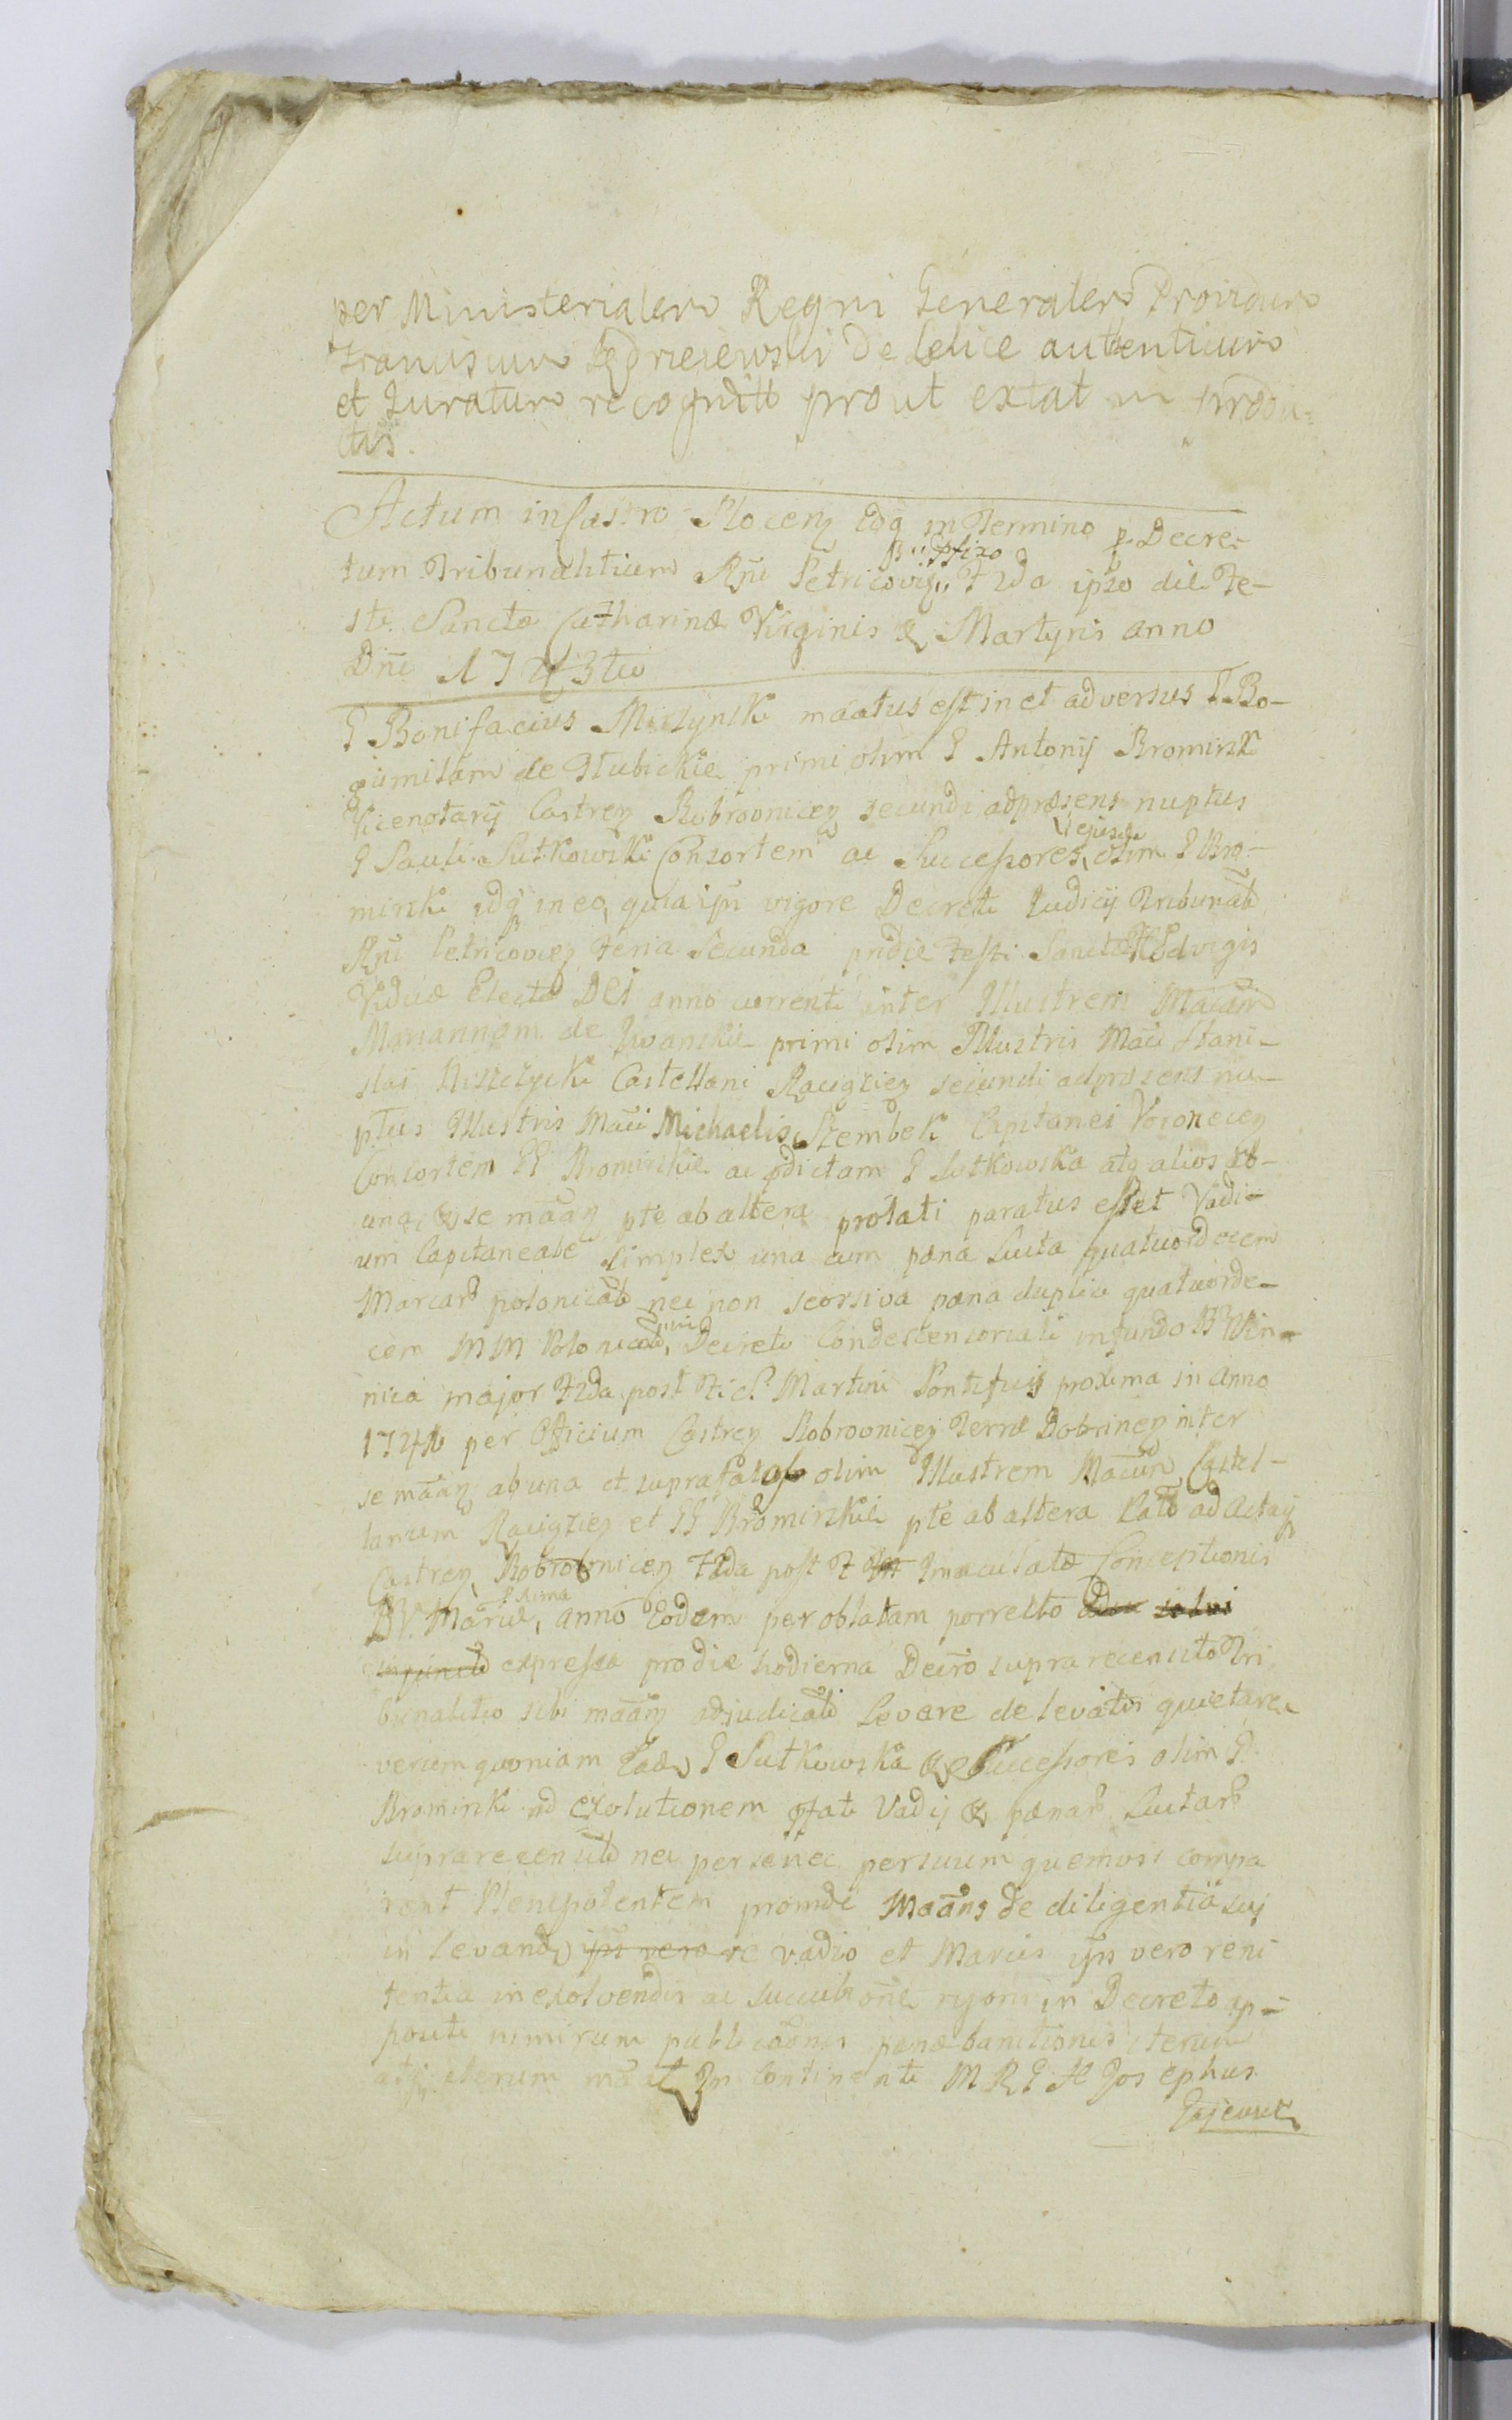 per Ministerialem Regni Generalem Providum
Franciscum de Lelice authenticum
et Juratum recognit prout extat in produ=
ctis.
Actum in Castro Plocen idq in Termino p Decre-
tum Tribunalitium Rni Petricovien pfixo Fda ipso die Fe-
sti Sanctæ Catharinæ Virginis & Martyris anno
Dni 1743tio
G Bonifacius Mieszynski maatus est in et adversus G Bo-
gumilam de Hubickie primi olim G Antonij Brominsk
Vicenotarij Castren Bobrovnicen secundi adpræsens nuptus
G Pauli Sutkowski Consortem ac Successores ejusde olim G Bro-
minski idq in eo, quia ipsi vigore Decreti Judicij Tribunal
Rni Petricovien Feria Secunda pridie Festi Sanctæ Hedvigis
Viduæ Electæ DEI anno currenti inter Illustrem Macam
Mariannam de Iwanskie primi olim Illustris Maci Stani-
slai Niszczycki Castellani Raciązien secundi adpræsens nu-
ptus Illustris Maci Michaelis Szembek Capitanei Voronecen
Consortem GG Brominskie ac pdictam G Sutkowska atq alios ab
una, & se maan pte ab altera prolati paratus esset Vadi-
um Capitaneale simplex una cum pæna Lucta quatuordecem
Marcar polonical nec non seorsiva pæna duplici quatuorde-
cem MM Polonical, Decreto Condescensoriali in fundo B Win-
nica major Fda post F S. Martini Pontificis proxima in Anno
1742 per Officium Castren Bobrovnicen Terræ Dobrinen inter
se maan ab una et suprafatos olim Illustrem Macum Castel-
lanum Raciązien et GG Brominskie pte ab altera Lato ad Acta
Castren Bobrovnicen Fda post F Imaculatæ Conceptionis
BV. Mariæ, pxima anno Eodem per oblatam porrecto
expressa pro die hodierna Decro supra recensito Tri
bunalitio sibi maan adjudicati Levare de levatis quietare,
verum quoniam Eadem G Sutkowska & Successores olim G
Brominski ad Exolutionem pfati Vadij & pænar Luctar
supra recensit nec per se nec per suum quemvis compa
rent Plenipotentem proinde Maans de diligentia sui
in levando ips vero re vadio et Marcis ips vero reni
tentia in exolvendis ac succubone rigoris in Decreto ap=
positi nimirum publicaonis pænæ banitionis iterum
atq iterum maat In Continenti M R G H Josephus